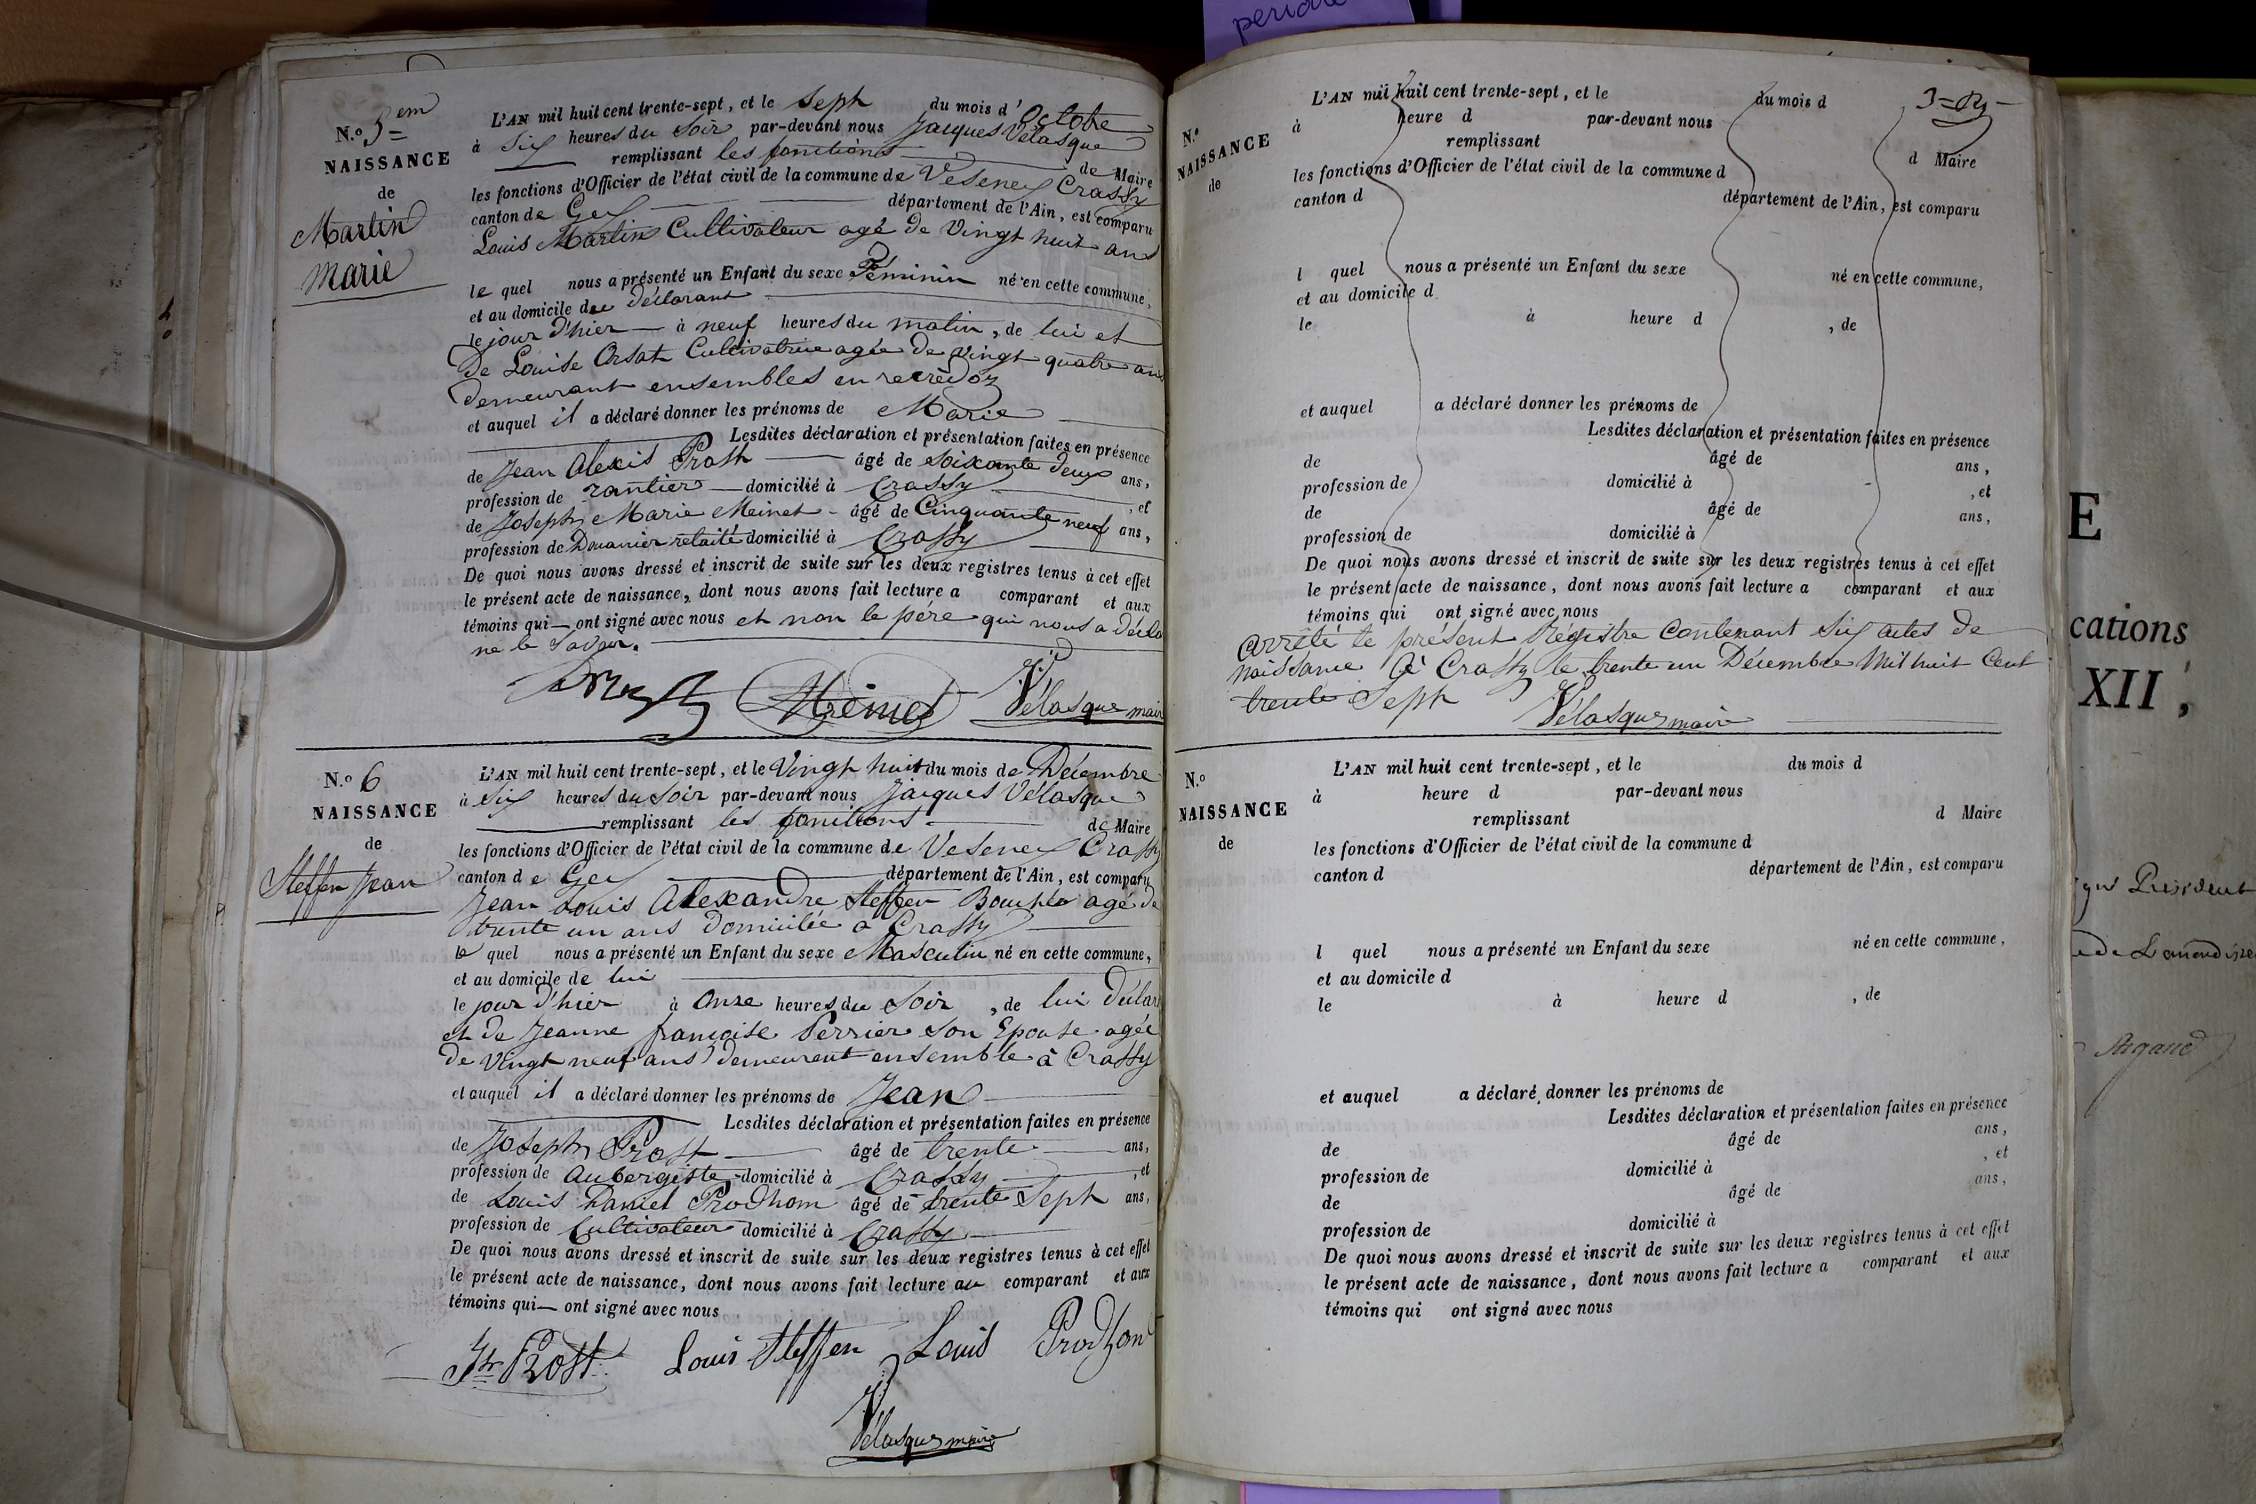 periode
N.o 5=em
NAISSANCE
de
Martin
Marie
L'AN mil huit cent trente-sept, et le Sept du mois d'Octobre
à Six heures du Soir par-devant nous Jacques Vélasque
remplissant les fonctions de Maire
les fonctions d'Officier de l'état civil de la commune de Vesenex Crassy
canton de Gex département de l'Ain, est comparu
Louis Martin Cultivateur agé de Vingt huit ans
le quel nous a présenté un Enfant du sexe Féminin né en cette commune,
et au domicile du déclarant
le jour d'hier à neuf heures du matin, de lui et
De Louise Orsat Cultivatrice agée de vingt quatre ans
Demeurant ensembles en
et auquel il a déclaré donner les prénoms de Marie
Lesdites déclaration et présentation faites en présence
de Jean Alexis Prost âgé de soixante deux ans,
profession de rantier domicilié à Crassy, et
de Joseph Marie Meinet âgé de Cinquante neuf ans,
profession de Douanier retaité domicilié à Crassy
De quoi nous avons dressé et inscrit de suite sur les deux registres tenus à cet effet
le présent acte de naissance, dont nous avons fait lecture a comparant et aux
témoins qui ont signé avec nous et non le père qui nous a décla
ne le Savoir.
Vélasque maire
N.o 6
NAISSANCE
de
Steffen Jean
L'AN mil huit cent trente-sept, et le Vingt huit du mois de Décembre
à Six heures du Soir par-devant nous Jacques Vélasque
remplissant les fonctions de Maire
les fonctions d'Officier de l'état civil de la commune de Vesenex Crassy
canton de Gex département de l'Ain, est comparu
Jean Louis Alexandre Steffen agé de
trente un ans domicilée a Crassy
le quel nous a présenté un Enfant du sexe Masculin né en cette commune,
et au domicile de lui
le jour d'hier à Onze heures du Soir, de lui Déclar
et de Jeanne françoise Perrier son Epouse agée
de Vingt neuf ans demeurent ensemble à Crassy
et auquel il a déclaré donner les prénoms de Jean
Lesdites déclaration et présentation faites en présence
de Joseph Prost âgé de trente ans,
profession de Aubergiste domicilié à Crassy, et
de Louis Daniel Prodhom âgé de trente Sept ans,
profession de Cultivateur domicilié à Crassy
De quoi nous avons dressé et inscrit de suite sur les deux registres tenus à cet effet
le présent acte de naissance, dont nous avons fait lecture au comparant et aux
témoins qui ont signé avec nous
Prost Louis Steffen Louis Prodhom
Vélasque maire
N.o
NAISSANCE
de
L'AN mil huit cent trente-sept, et le du mois d
à heure d par-devant nous
remplissant d Maire
les fonctions d'Officier de l'état civil de la commune d
canton d département de l'Ain, est comparu
l quel nous a présenté un Enfant du sexe né en cette commune,
et au domicile d
le à heure d , de
et auquel a déclaré donner les prénoms de
Lesdites déclaration et présentation faites en présence
de âgé de ans,
profession de domicilié à , et
de âgé de ans,
profession de domicilié à
De quoi nous avons dressé et inscrit de suite sur les deux registres tenus à cet effet
le présent acte de naissance, dont nous avons fait lecture a comparant et aux
témoins qui ont signé avec nous
arrêté le présent Régistre Contenant Six actes de
naissance à Crassy le trente un Décembre Mil huit Cent
trente Sept
Vélasque maire
N.o
NAISSANCE
de
L'AN mil huit cent trente-sept, et le du mois d
à heure d par-devant nous
remplissant d Maire
les fonctions d'Officier de l'état civil de la commune d
canton d département de l'Ain, est comparu
l quel nous a présenté un Enfant du sexe né en cette commune,
et au domicile d
le à heure d , de
et auquel a déclaré donner les prénoms de
Lesdites déclaration et présentation faites en présence
de âgé de ans,
profession de domicilié à , et
de âgé de ans,
profession de domicilié à
De quoi nous avons dressé et inscrit de suite sur les deux registres tenus à cet effet
le présent acte de naissance, dont nous avons fait lecture a comparant et aux
témoins qui ont signé avec nous
E
cations
XII,
Président
Argand